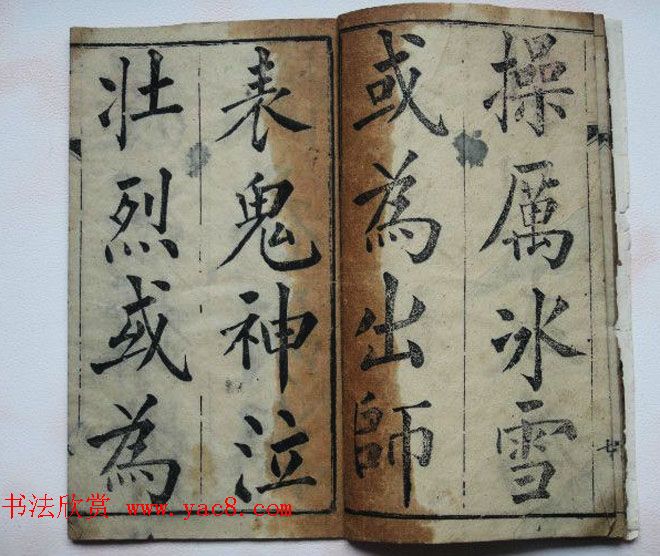 操厲冰雪
或為出師
表鬼神泣
壯烈或為
七
书法欣赏 www.yac8.com